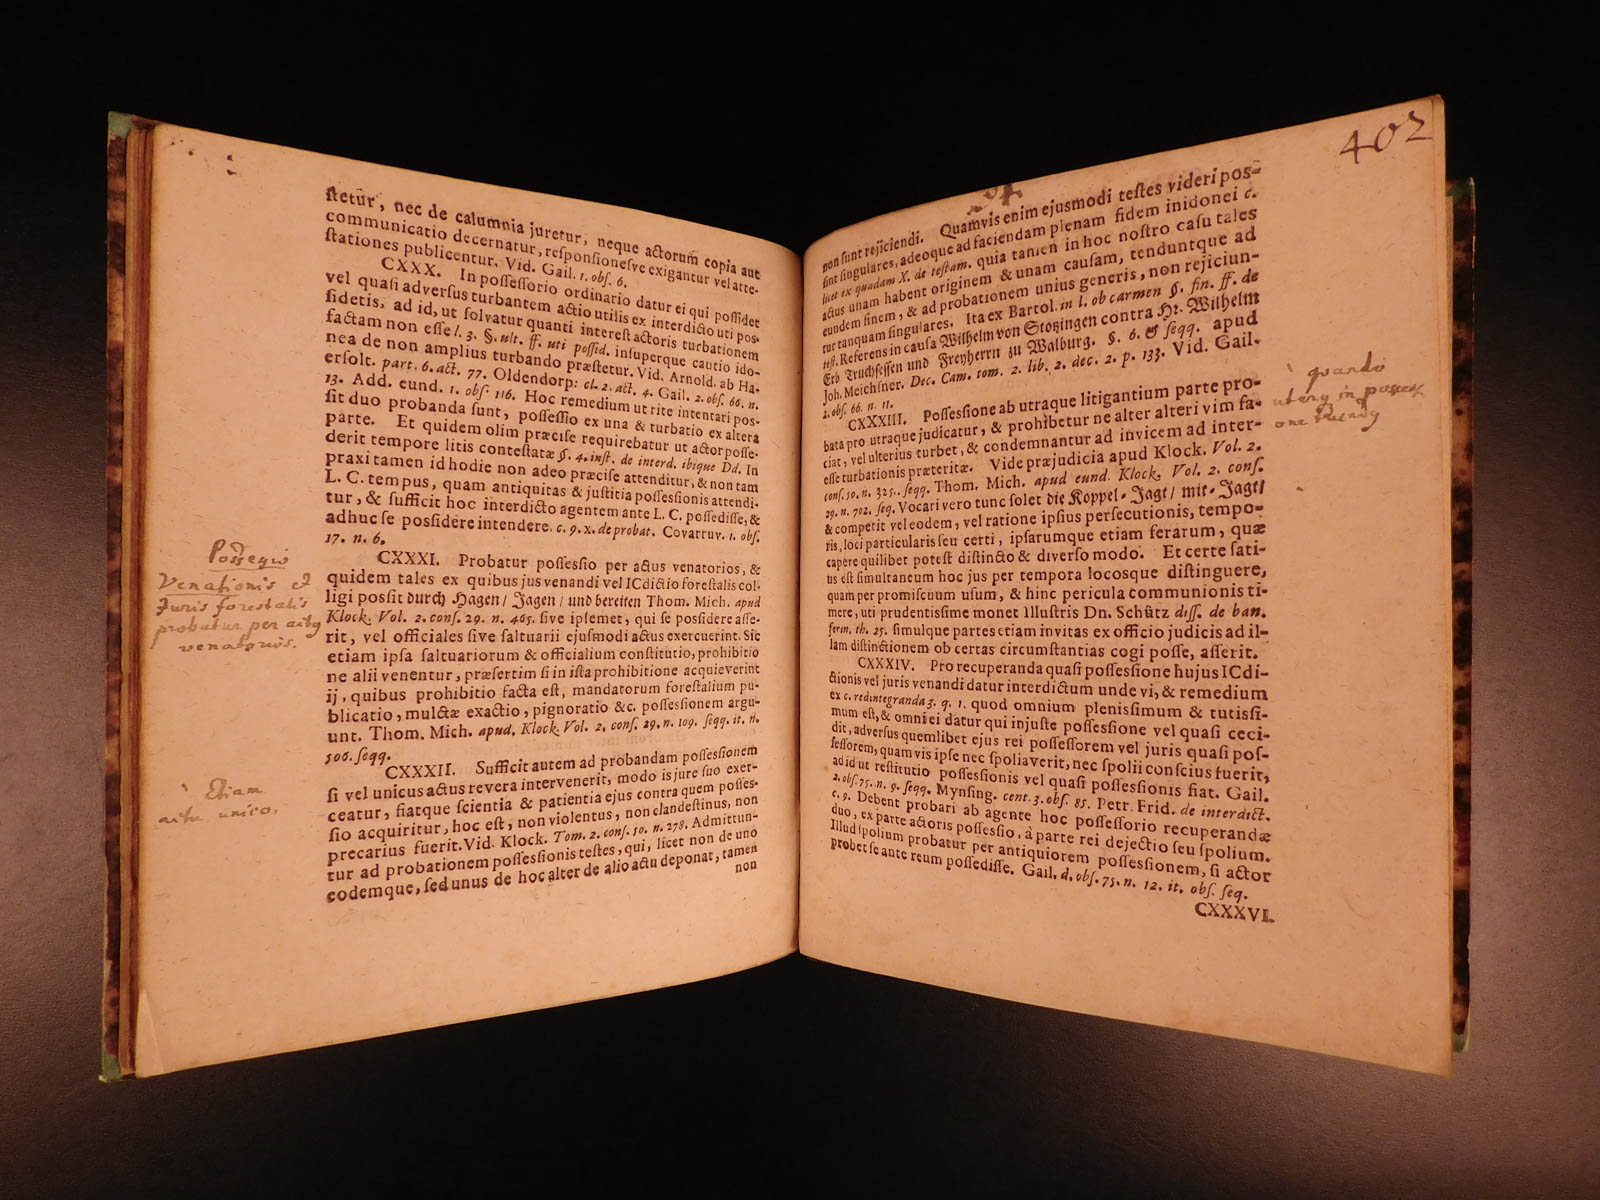 ſtetur, nec de calumnia juretur, neque actorum copia aut
communicatio decernatur, reſponſionesve exigantur vel atte-
ſtationes publicentur. Vid. Gail. 1. obſ. 6.
CXXX. In poſſeſſorio ordinario datur ei qui poſſidet
vel quaſi adverſus turbantem actio utilis ex interdicto uti poſ-
ſidetis, ad id, ut ſolvatur quanti intereſt actoris turbationem
factam non eſſe l. 3. §. ult. ff. uti poſſid. inſuperque cautio ido-
nea de non amplius turbando præſtetur. Vid. Arnold. ab Ha-
erſolt. part. 6. act. 77. Oldendorp: cl. 2. act. 4. Gail. 2. obſ. 66. n.
13. Add. eund. 1. obſ. 116. Hoc remedium ut rite intentari poſ-
ſit duo probanda ſunt, poſſeſſio ex una & turbatio ex altera
parte. Et quidem olim præciſe requirebatur ut actor poſſe-
derit tempore litis conteſtatæ §. 4. inſt. de interd. ibique Dd. In
praxi tamen id hodie non adeo præciſe attenditur, & non tam
L. C. tempus, quam antiquitas & juſtitia poſſeſſionis attendi-
tur, & ſufficit hoc interdicto agentem ante L. C. poſſediſſe, &
adhuc ſe poſſidere intendere. c. 9. x. de probat. Covarruv. 1. obſ.
17. n. 6.
Poſſeſſio
Venationis et
Juris forestalis
probatur per actus
venatorios.
CXXXI. Probatur poſſeſſio per actus venatorios, &
quidem tales ex quibus jus venandi vel ICdictio foreſtalis col-
ligi poſſit durch Hagen/ Jagen/ und bereiten Thom. Mich. apud
Klock. Vol. 2. conſ. 29. n. 465. ſive ipſemet, qui ſe poſſidere aſſe-
rit, vel officiales ſive ſaltuarii ejuſmodi actus exercuerint. Sic
etiam ipſa ſaltuariorum & officialium conſtitutio, prohibitio
ne alii venentur, præſertim ſi in iſta prohibitione acquieverint
ij, quibus prohibitio facta eſt, mandatorum foreſtalium pu-
blicatio, mulctæ exactio, pignoratio &c. poſſeſſionem argu-
unt. Thom. Mich. apud. Klock. Vol. 2. conſ. 29. n. 109. ſeqq. it. n.
506. ſeqq.
Etiam
actu unico.
CXXXII. Sufficit autem ad probandam poſſeſſionem
ſi vel unicus actus revera intervenerit, modo is jure ſuo exer-
ceatur, fiatque ſcientia & patientia ejus contra quem poſſeſ-
ſio acquiritur, hoc eſt, non violentus, non clandeſtinus, non
precarius fuerit. Vid. Klock. Tom. 2. conſ. 50. n. 278. Admittun-
tur ad probationem poſſeſſionis teſtes, qui, licet non de uno
eodemque, ſed unus de hoc alter de alio actu deponat, tamen
non
402
non ſunt rejiciendi. Quamvis enim ejuſmodi teſtes videri poſ-
ſint ſingulares, adeoque ad faciendam plenam fidem inidonei c.
licet ex quadam X. de teſtam. quia tamen in hoc noſtro caſu tales
actus unam habent originem & unam cauſam, tenduntque ad
eundem finem, & ad probationem unius generis, non rejiciun-
tur tanquam ſingulares. Ita ex Bartol. in l. ob carmen §. fin. ff. de
teſt. Referens in cauſa Wilhelm von Stotzingen contra Hr. Wilhelm
Erb Truchſeſſen und Freyherrn zu Walburg. §. 6. & ſeqq. apud
Joh. Meichſner. Dec. Cam. tom. 2. lib. 2. dec. 2. p. 133. Vid. Gail.
2. obſ. 66. n. 11.
quando
uterq in poſſeſſ
one
CXXXIII. Poſſeſſione ab utraque litigantium parte pro-
bata pro utraque judicatur, & prohibetur ne alter alteri vim fa-
ciat, vel ulterius turbet, & condemnantur ad invicem ad inter-
eſſe turbationis præteritæ. Vide præjudicia apud Klock. Vol. 2.
conſ. 50. n. 325. ſeqq. Thom. Mich. apud eund. Klock. Vol. 2. conſ.
29. n. 702. ſeq. Vocari vero tunc ſolet die Koppel-Jagt/ mit-Jagt/
& competit vel eodem, vel ratione ipſius perſecutionis, tempo-
ris, loci particularis ſeu certi, ipſarumque etiam ferarum, quæ
capere quilibet poteſt diſtincto & diverſo modo. Et certe ſati-
us eſt ſimultaneum hoc jus per tempora locosque diſtinguere,
quam per promiſcuum uſum, & hinc pericula communionis ti-
mere, uti prudentiſſime monet Illuſtris Dn. Schütz diſſ. de ban.
ferin. th. 25. ſimulque partes etiam invitas ex officio judicis ad il-
lam diſtinctionem ob certas circumſtantias cogi poſſe, aſſerit.
CXXXIV. Pro recuperanda quaſi poſſeſſione hujus ICdi-
ctionis vel juris venandi datur interdictum unde vi, & remedium
ex c. redintegranda 3. q. 1. quod omnium pleniſſimum & tutiſſi-
mum eſt, & omni ei datur qui injuſte poſſeſſione vel quaſi ceci-
dit, adverſus quemlibet ejus rei poſſeſſorem vel juris quaſi poſ-
ſeſſorem, quamvis ipſe nec ſpoliaverit, nec ſpolii conſcius fuerit,
ad id ut reſtitutio poſſeſſionis vel quaſi poſſeſſionis fiat. Gail.
2. obſ. 75. n. 9. ſeqq. Mynſing. cent. 3. obſ. 85. Petr. Frid. de interdict.
c. 9. Debent probari ab agente hoc poſſeſſorio recuperandæ
duo, ex parte actoris poſſeſſio, à parte rei dejectio ſeu ſpolium.
Illud ſpolium probatur per antiquiorem poſſeſſionem, ſi actor
probet ſe ante reum poſſediſſe. Gail. d. obſ. 75. n. 12. it. obſ. ſeq.
CXXXVI.